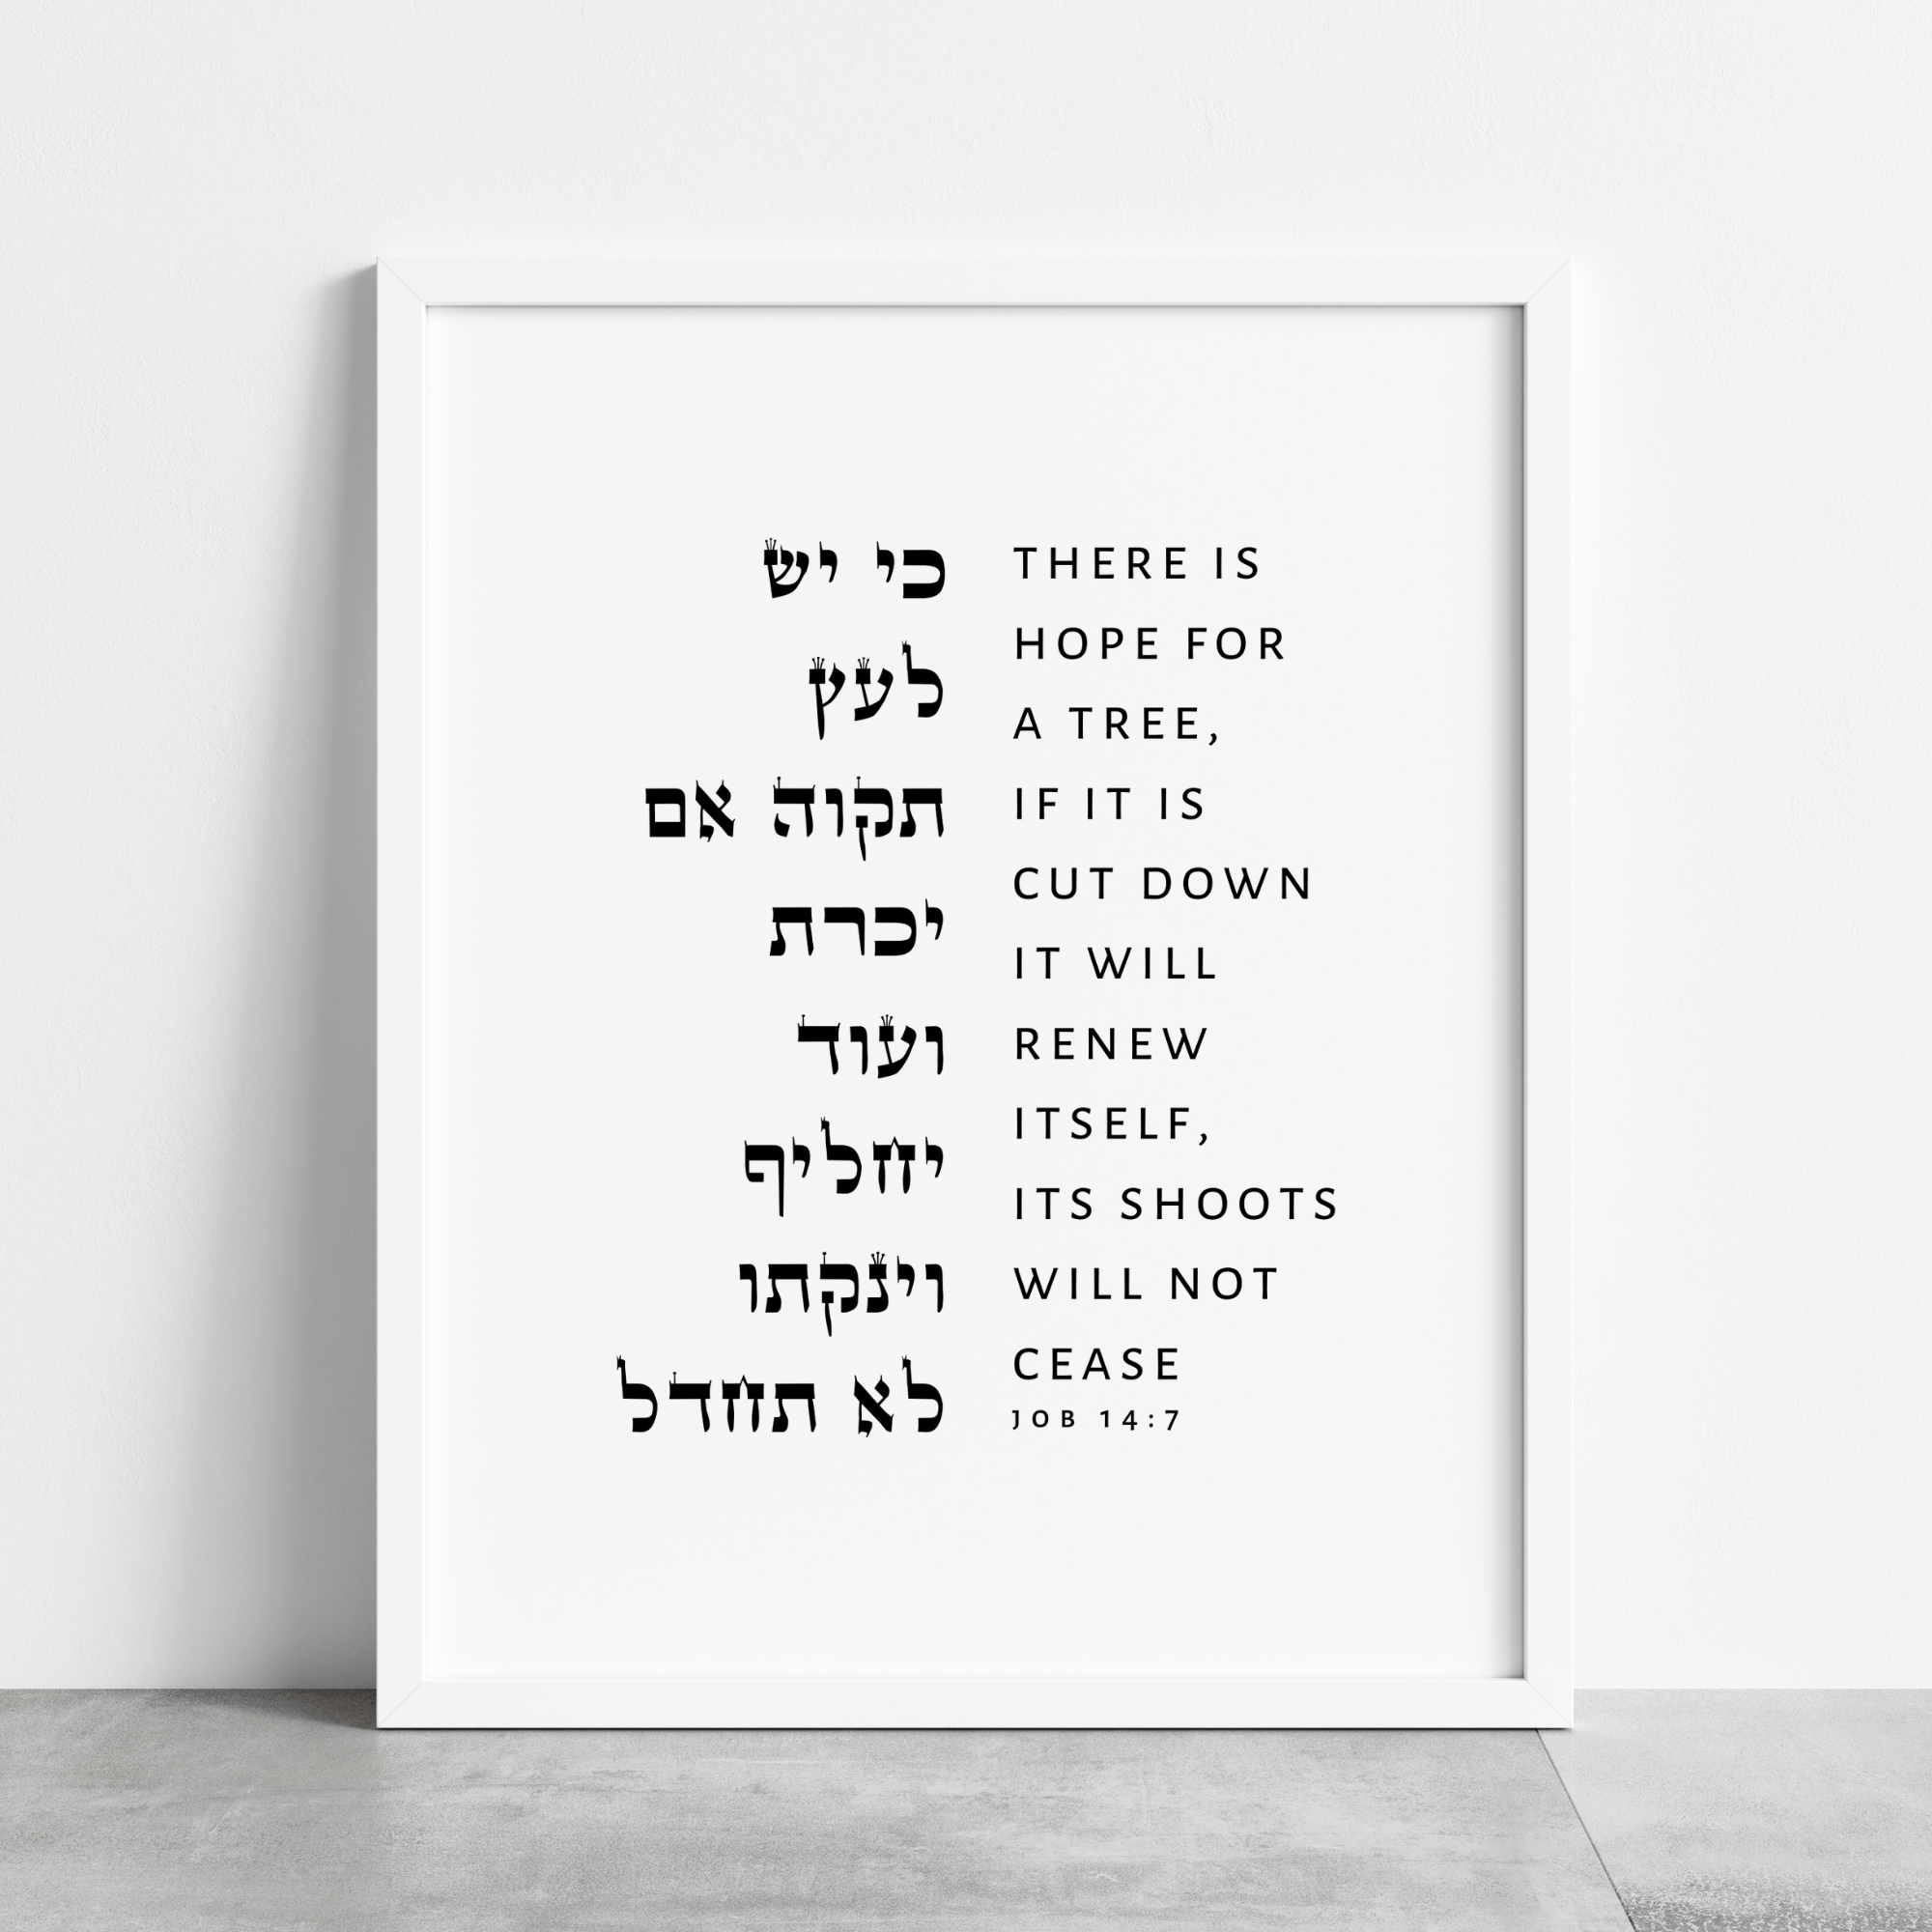 כי יש
לעץ
תקוה אם
יכרת
ועוד
יחליף
וינקתו
לא תחדל
THERE IS
HOPE FOR
A TREE,
IF IT IS
CUT DOWN
IT WILL
RENEW
ITSELF,
ITS SHOOTS
WILL NOT
CEASE
JOB 14:7